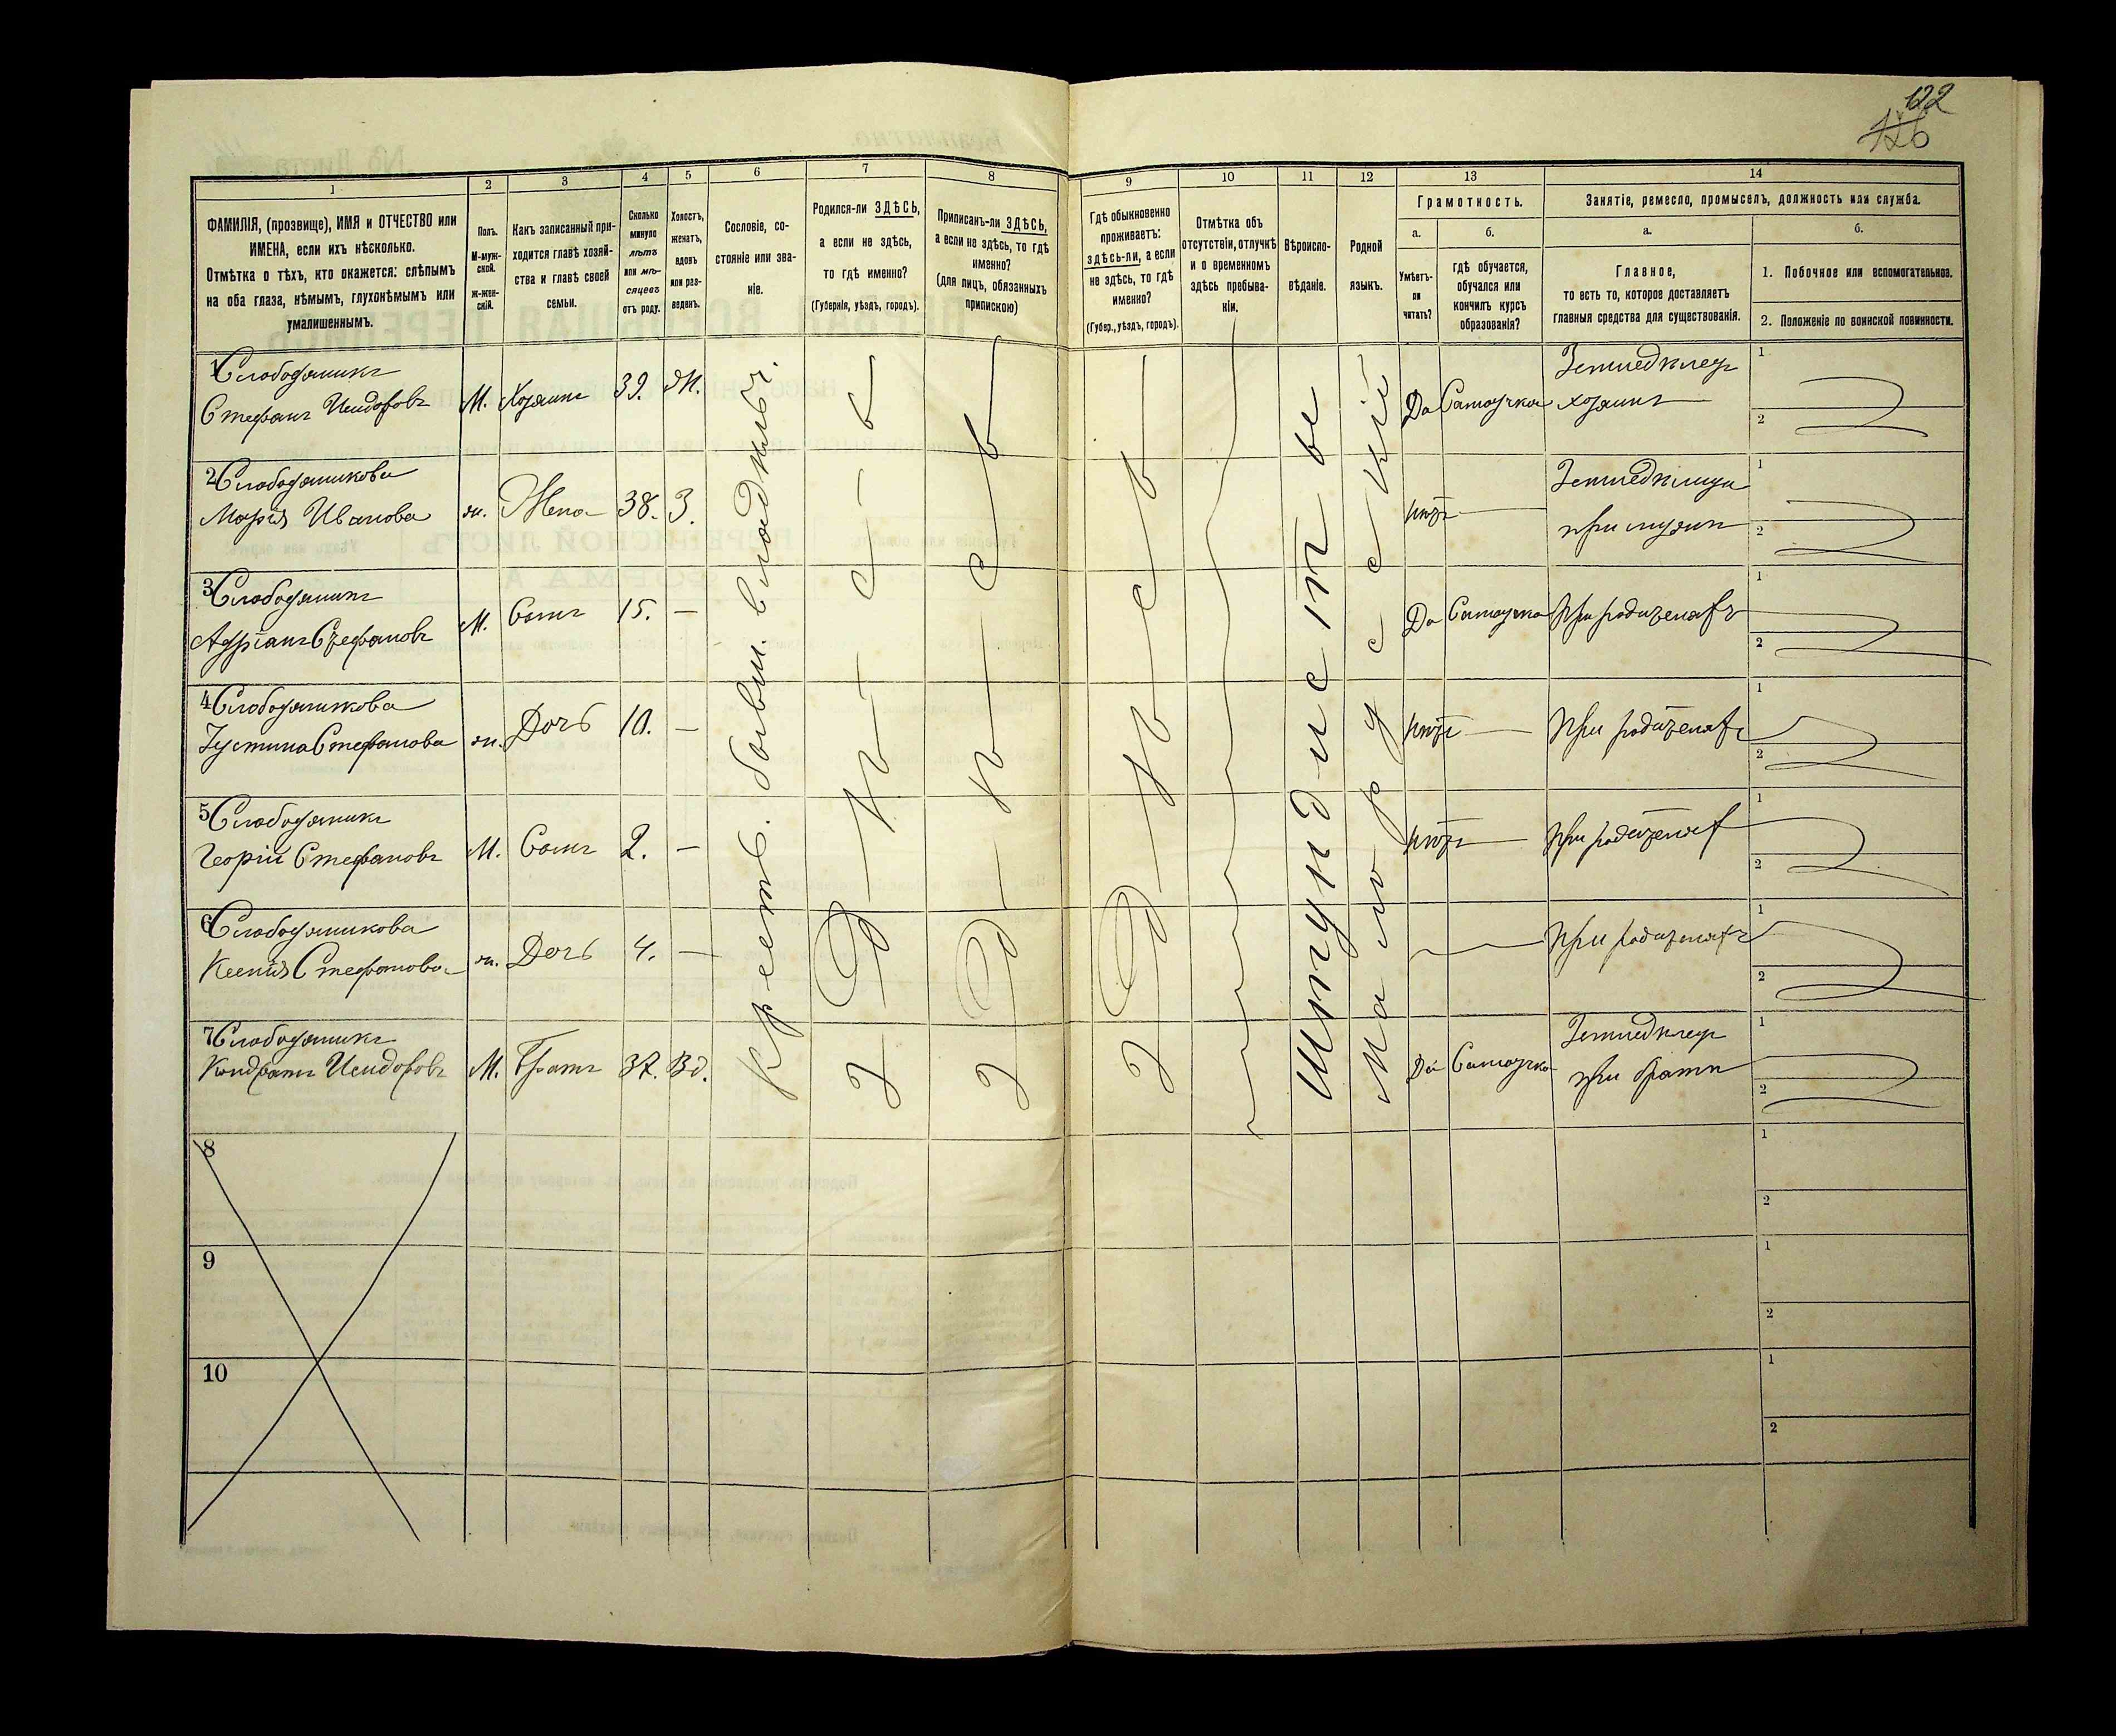 122
126
1 2 3 4 5 6 7 8 9 10 11 12 13 14
ФАМИЛІЯ, (прозвище), ИМЯ и ОТЧЕСТВО или
ИМЕНА, если ихъ нѣсколько.
Отмѣтка о тѣхъ, кто окажется: слѣпымъ
на оба глаза, нѣмымъ, глухонѣмымъ или
умалишеннымъ.
Полъ.
М-муж-
ской.
Ж-жен-
скій.
Какъ записанный при-
ходится главѣ хозяй-
ства и главѣ своей
семьи.
Сколько
минуло
лѣтъ
или мѣ-
сяцевъ
отъ роду.
Холостъ,
женатъ,
вдовъ
или раз-
веденъ.
Сословіе, со-
стояніе или зва-
ніе.
Родился-ли ЗДѢСЬ,
а если не здѣсь,
то гдѣ именно?
(Губернія, уѣздъ, городъ).
Приписанъ-ли ЗДѢСЬ,
а если не здѣсь, то гдѣ
именно?
(для лицъ, обязанныхъ
припискою)
Гдѣ обыкновенно
проживаетъ:
здѣсь-ли, а если
не здѣсь, то гдѣ
именно?
(Губер., уѣздъ, городъ).
Отмѣтка объ
отсутствіи, отлучкѣ
и о временномъ
здѣсь пребыва-
ніи.
Вѣроиспо-
вѣданіе.
Родной
языкъ.
Грамотность.
а.
Умѣетъ-
ли
читать?
б.
гдѣ обучается,
обучался или
кончилъ курсъ
образованія?
Занятіе, ремесло, промыселъ, должность или служба.
а.
Главное,
то есть то, которое доставляетъ
главныя средства для существованія.
б.
1. Побочное или вспомогательное.
2. Положеніе по воинской повинности.
1 Слободяникъ
Стефанъ Исидоровъ М. Хозяинъ 39. Ж. Да Самоучка Земледѣлец
хозяинъ
1
2
2 Слободяникова
Марія Иванова ж. Жена 38. З. нѣтъ Земледѣлица
при мужѣ
1
2
3 Слободяникъ
Адріанъ Стефановъ М. Сынъ 15. — Да Самоучка При родителяхъ
1
2
4 Слободяникова
Іустина Стефанова ж. Дочь 10. — нѣтъ При родителяхъ
1
2
5 Слободяникъ
Георгій Стефановъ М. Сынъ 2. — нѣтъ При родителях
1
2
6 Слободяникова
Ксенія Стефанова ж. Дочь 4. — При родителяхъ
1
2
7 Слободяникъ
Кондратъ Исидоровъ М. Братъ 37. Вд. Да Самоучка Земледѣлец
при братѣ
1
2
Крестья. бывш. владѣльч.
Здѣсь
Здѣсь
Здѣсь
Штундистъ
Малорусскій
8
1
2
9
1
2
10
1
2